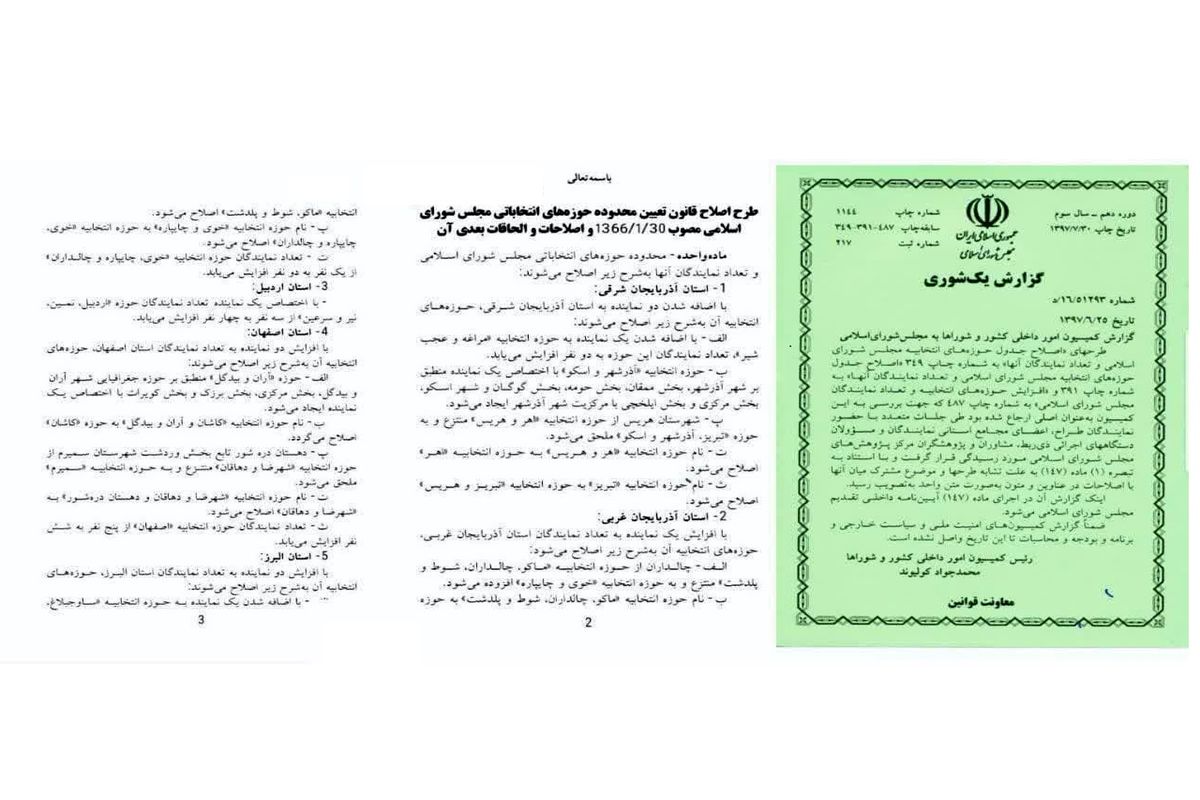 دوره دهم ــ سال سوم
تاریخ چاپ ۱۳۹۷/۷/۳۰
جمهوری اسلامی ایران
مجلس شورای اسلامی
شماره چاپ ۱۱۴۴
سابقه‌چاپ ۴۸۷-۳۹۱-۳۴۹
شماره ثبت ۲۱۷
گزارش یک‌شوری
شماره ۱۶/۵۱۲۹۳/د
تاریخ ۱۳۹۷/۶/۲۵
گزارش کمیسیون امور داخلی کشور و شوراها به مجلس‌شورای‌اسلامی
طرحهای «اصلاح جدول حوزه‌های انتخابیه مجلس شورای
اسلامی و تعداد نمایندگان آنها» به شماره چاپ ۳۴۹ «اصلاح جدول
حوزه‌های انتخابیه مجلس شورای اسلامی و تعداد نمایندگان آنها» به
شماره چاپ ۳۹۱ و «افزایش حوزه‌های انتخابیه و تعداد نمایندگان
مجلس شورای اسلامی» به شماره چاپ ۴۸۷ که جهت بررسی به این
کمیسیون به‌عنوان اصلی ارجاع شده بود طی جلسات متعدد با حضور
نمایندگان طراح، اعضای مجامع استانی نمایندگان و مسؤولان
دستگاههای اجرائی ذی‌ربط، مشاوران و پژوهشگران مرکز پژوهش‌های
مجلس شورای اسلامی مورد رسیدگی قرار گرفت و با استناد به
تبصره (۱) ماده (۱۴۷) به علت تشابه طرحها و موضوع مشترک میان آنها
با اصلاحات در عناوین و متون به‌صورت متن واحد به‌تصویب رسید.
اینک گزارش آن در اجرای ماده (۱۴۷) آیین‌نامه داخلی تقدیم
مجلس شورای اسلامی می‌شود.
ضمناً گزارش کمیسیون‌های امنیت ملی و سیاست خارجی و
برنامه و بودجه و محاسبات تا این تاریخ واصل نشده است.
رئیس کمیسیون امور داخلی کشور و شوراها
محمدجواد کولیوند
معاونت قوانین
باسمه تعالی
طرح اصلاح قانون تعیین محدوده حوزه‌های انتخاباتی مجلس شورای
اسلامی مصوب 1366/1/30 و اصلاحات و الحاقات بعدی آن
ماده‌واحده- محدوده حوزه‌های انتخاباتی مجلس شورای اسلامی
و تعداد نمایندگان آنها به‌شرح زیر اصلاح می‌شوند:
1- استان آذربایجان شرقی:
با اضافه شدن دو نماینده به استان آذربایجان شرقی، حوزه‌های
انتخابیه آن به‌شرح زیر اصلاح می‌شوند:
الف- با اضافه شدن یک نماینده به حوزه انتخابیه «مراغه و عجب
شیر»، تعداد نمایندگان این حوزه به دو نفر افزایش می‌یابد.
ب- حوزه انتخابیه «آذرشهر و اسکو» با اختصاص یک نماینده منطبق
بر شهر آذرشهر، بخش ممقان، بخش حومه، بخش گوگان و شهر اسکو،
بخش مرکزی و بخش ایلخچی با مرکزیت شهر آذرشهر ایجاد می‌شود.
پ- شهرستان هریس از حوزه انتخابیه «اهر و هریس» منتزع و به
حوزه «تبریز، آذرشهر و اسکو» ملحق می‌شود.
ت- نام حوزه انتخابیه «اهر و هریس» به حوزه انتخابیه «اهر»
اصلاح می‌شود.
ث- نام حوزه انتخابیه «تبریز» به حوزه انتخابیه «تبریز و هریس»
اصلاح می‌شود.
2- استان آذربایجان غربی:
با افزایش یک نماینده به تعداد نمایندگان استان آذربایجان غربی،
حوزه‌های انتخابیه آن به‌شرح زیر اصلاح می‌شود:
الف- چالدران از حوزه انتخابیه «ماکو، چالدران، شوط و
پلدشت» منتزع و به حوزه انتخابیه «خوی و چایپاره» افزوده می‌شود.
ب- نام حوزه انتخابیه «ماکو، چالدران، شوط و پلدشت» به حوزه
2
انتخابیه «ماکو، شوط و پلدشت» اصلاح می‌شود.
پ- نام حوزه انتخابیه «خوی و چایپاره» به حوزه انتخابیه «خوی،
چایپاره و چالدران» اصلاح می‌شود.
ت- تعداد نمایندگان حوزه انتخابیه «خوی، چایپاره و چالدران»
از یک نفر به دو نفر افزایش می‌یابد.
3- استان اردبیل:
- با اختصاص یک نماینده تعداد نمایندگان حوزه «اردبیل، نمین،
نیر و سرعین» از سه نفر به چهار نفر افزایش می‌یابد.
4- استان اصفهان:
با افزایش دو نماینده به تعداد نمایندگان استان اصفهان، حوزه‌های
انتخابیه آن به‌شرح زیر اصلاح می‌شوند:
الف- حوزه «آران و بیدگل» منطبق بر حوزه جغرافیایی شهر آران
و بیدگل، بخش مرکزی، بخش برزک و بخش کویرات با اختصاص یک
نماینده ایجاد می‌شود.
ب- نام حوزه انتخابیه «کاشان و آران و بیدگل» به حوزه «کاشان»
اصلاح می‌گردد.
پ- دهستان دره شور تابع بخش وردشت شهرستان سمیرم از
حوزه انتخابیه «شهرضا و دهاقان» منتزع و به حوزه انتخابیه «سمیرم»
ملحق می‌شود.
ت- نام حوزه انتخابیه «شهرضا و دهاقان و دهستان دره‌شور» به
«شهرضا و دهاقان» اصلاح می‌شود.
ث- تعداد نمایندگان حوزه انتخابیه «اصفهان» از پنج نفر به شش
نفر افزایش می‌یابد.
5- استان البرز:
با افزایش دو نماینده به تعداد نمایندگان استان البرز، حوزه‌های
انتخابیه آن به‌شرح زیر اصلاح می‌شوند:
- با اضافه شدن یک نماینده به حوزه انتخابیه «ساوجبلاغ،
3